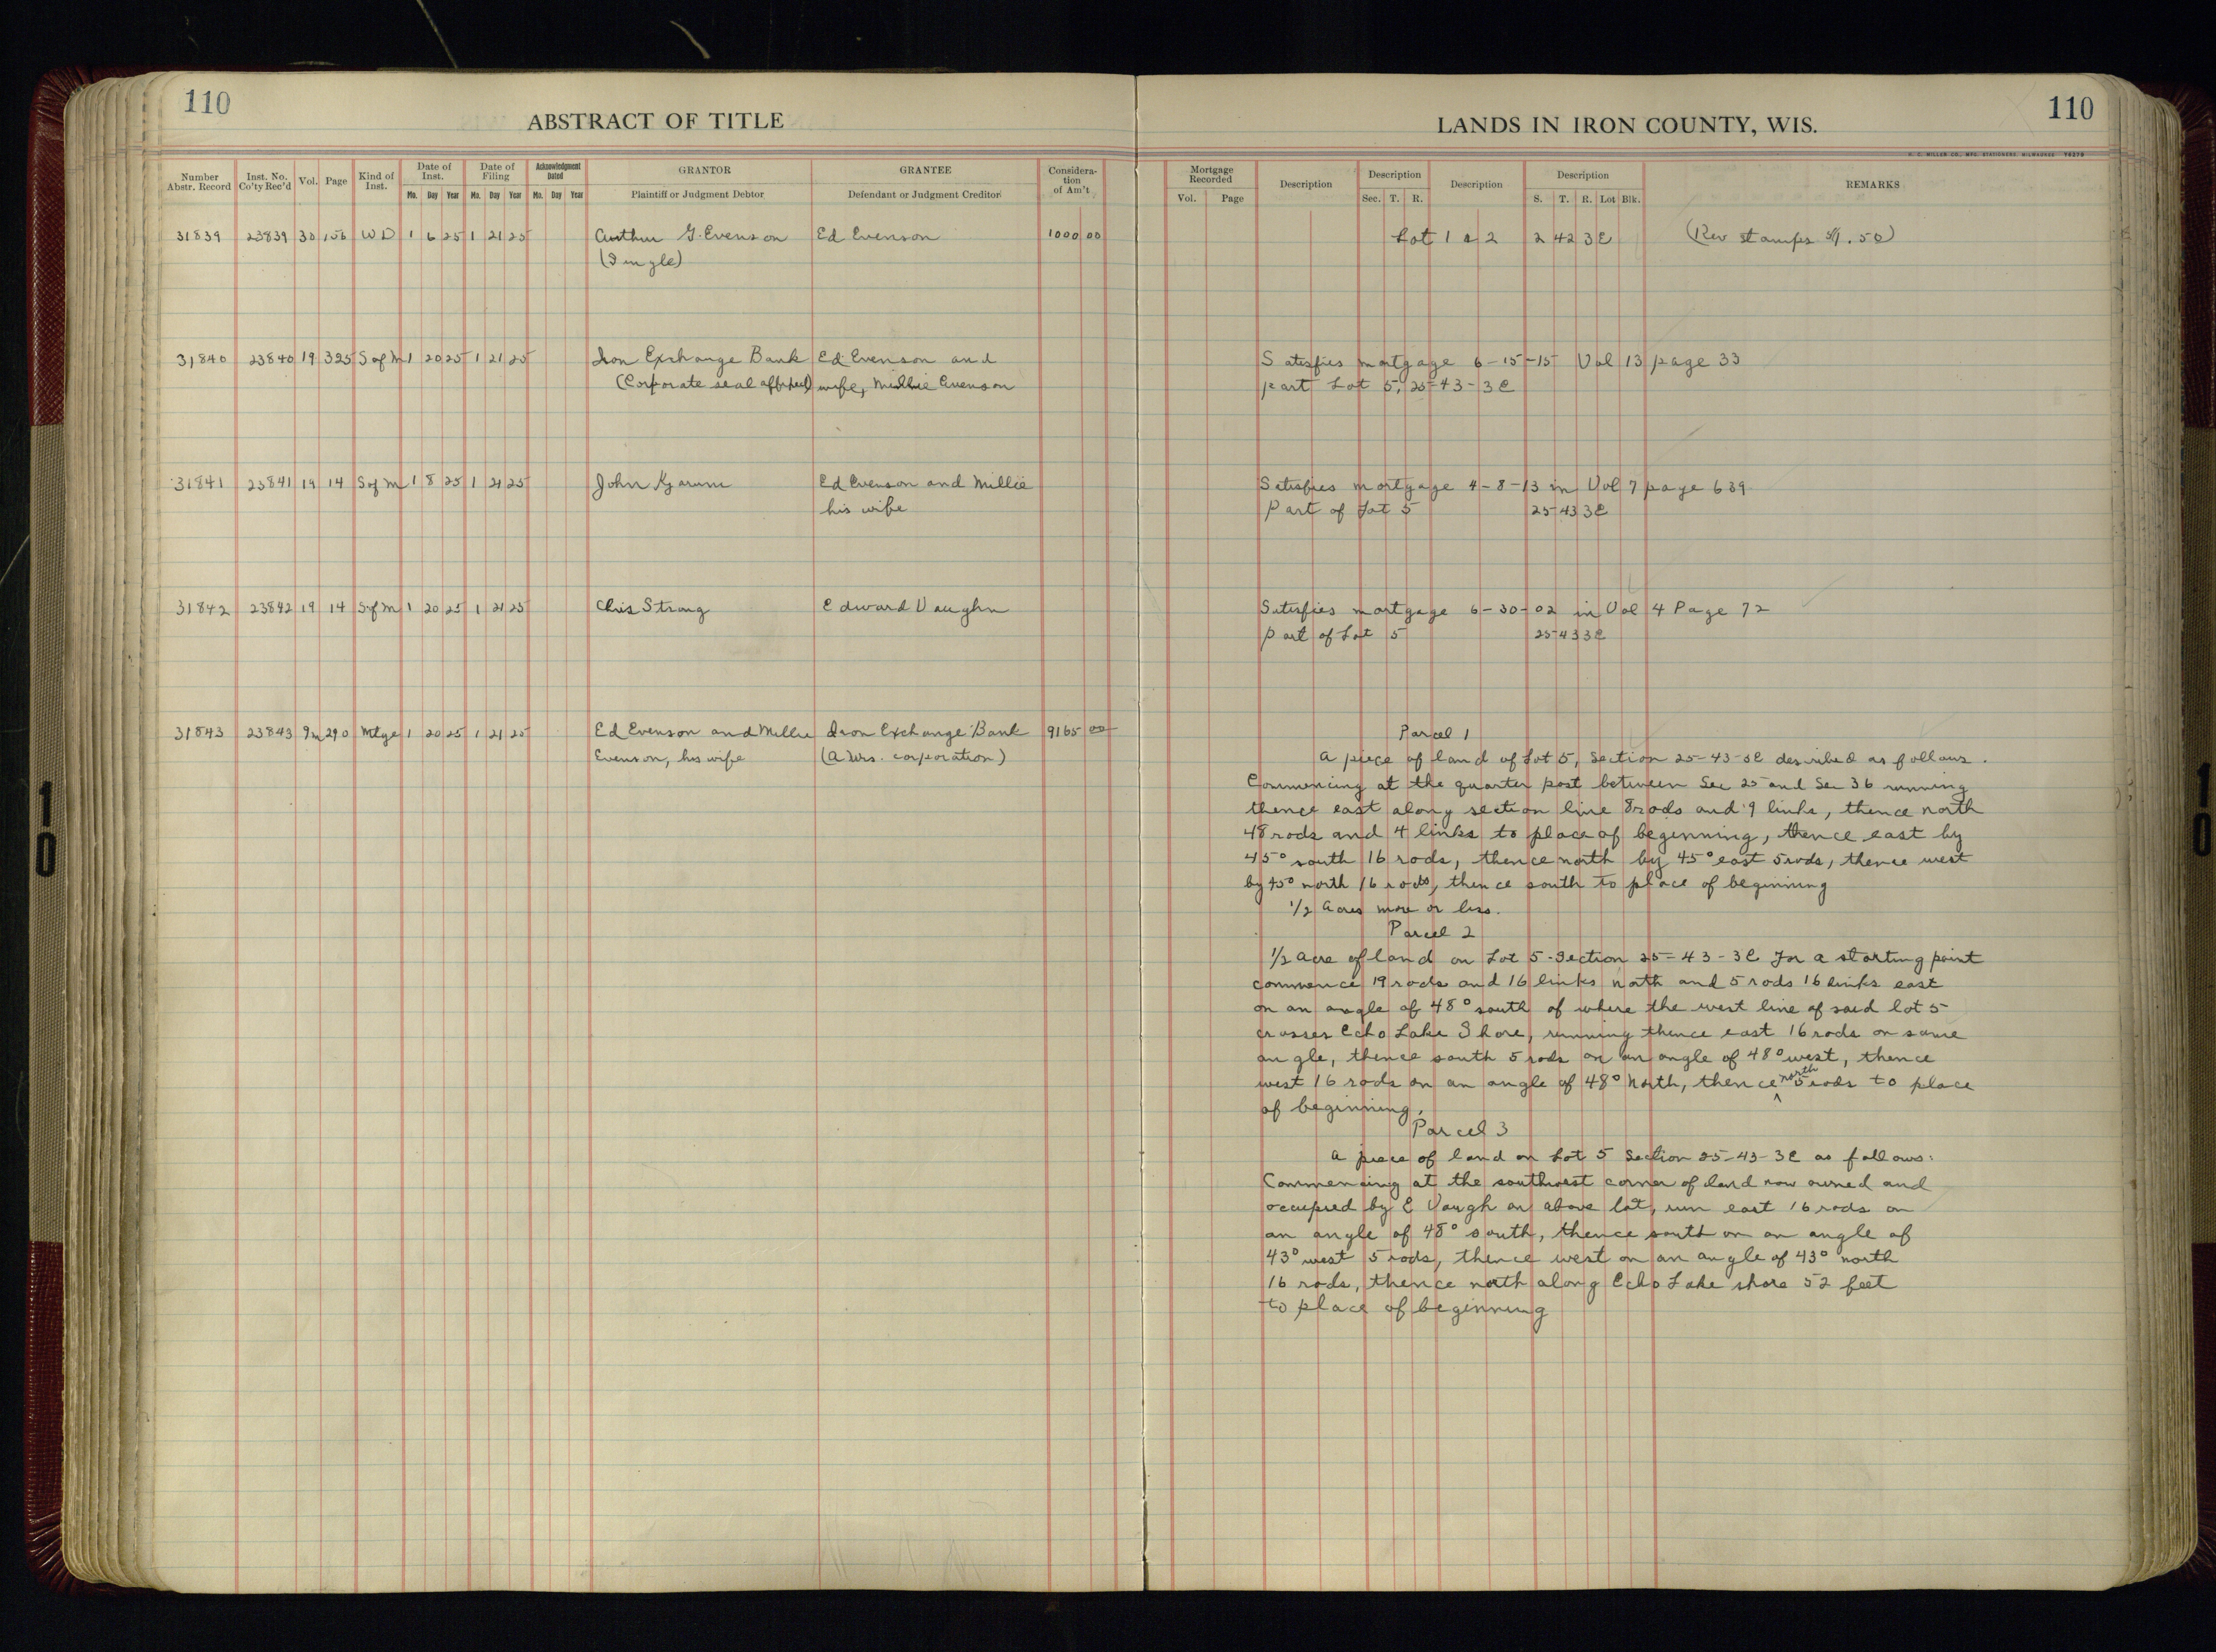 110
ABSTRACT OF TITLE
Number Abstr. Record | Inst. No. Co'ty Rec'd | Vol. | Page | Kind of Inst. | Date of Inst. Mo. Day Year | Date of Filing Mo. Day Year | Acknowledgment Dated Mo. Day Year | GRANTOR Plaintiff or Judgment Debtor | GRANTEE Defendant or Judgment Creditor | Consideration of Am't
31839 23839 30 156 W D 1 6 25 1 21 25 Arthur G. Evenson Ed Evenson 1000 00
(Single)
31840 23840 19 325 S of M 1 20 25 1 21 25 Iron Exchange Bank Ed Evenson and
(Corporate seal affixed) wife, Millie Evenson
31841 23841 19 14 S of M 1 8 25 1 21 25 John Ed Evenson and Millie
his wife
31842 23842 19 14 S of M 1 20 25 1 21 25 Chris Strong Edward Vaughn
31843 23843 9m 290 Mtge 1 20 25 1 21 25 Ed Evenson and Millie Iron Exchange Bank 9165 00
Evenson, his wife (A Wis. corporation)
110
LANDS IN IRON COUNTY, WIS.
H. C. MILLER CO., MFG. STATIONERS, MILWAUKEE
Mortgage Recorded Vol. Page | Description | Description Sec. T. R. | Description | Description S. T. R. Lot Blk. | REMARKS
Lot 1 & 2 2 42 3E (Rev stamps $1.50)
Satisfies mortgage 6-15-15 Vol 13 page 33
part Lot 5, 25-43-3E
Satisfies mortgage 4-8-13 in Vol 7 page 639
Part of Lot 5 25-43 3E
Satisfies mortgage 6-30-02 in Vol 4 Page 72
part of Lot 5 25-43 3E
Parcel 1
A piece of land of Lot 5, Section 25-43-3E described as follows.
Commencing at the quarter post between Sec 25 and Sec 36 running
thence east along section line 8 rods and 9 links, thence north
48 rods and 4 links to place of beginning, thence east by
45° south 16 rods, thence north by 45° east 5 rods, thence west
by 45° north 16 rods, thence south to place of beginning
1/2 Acres more or less.
Parcel 2
1/2 Acre of land on Lot 5-Section 25-43-3E For a starting point
commence 19 rods and 16 links north and 5 rods 16 links east
on an angle of 48° south of where the west line of said lot 5
crosses Echo Lake Shore, running thence east 16 rods on same
angle, thence south 5 rods on an angle of 48° west, thence
west 16 rods on an angle of 48° North, thence north 5 rods to place
of beginning.
Parcel 3
A piece of land on Lot 5 Section 25-43-3E as follows:
Commencing at the southwest corner of land now owned and
occupied by E Vaugh on above lot, run east 16 rods on
an angle of 48° south, thence south on an angle of
43° west 5 rods, thence west on an angle of 43° north
16 rods, thence north along Echo Lake shore 52 feet
to place of beginning
110
110